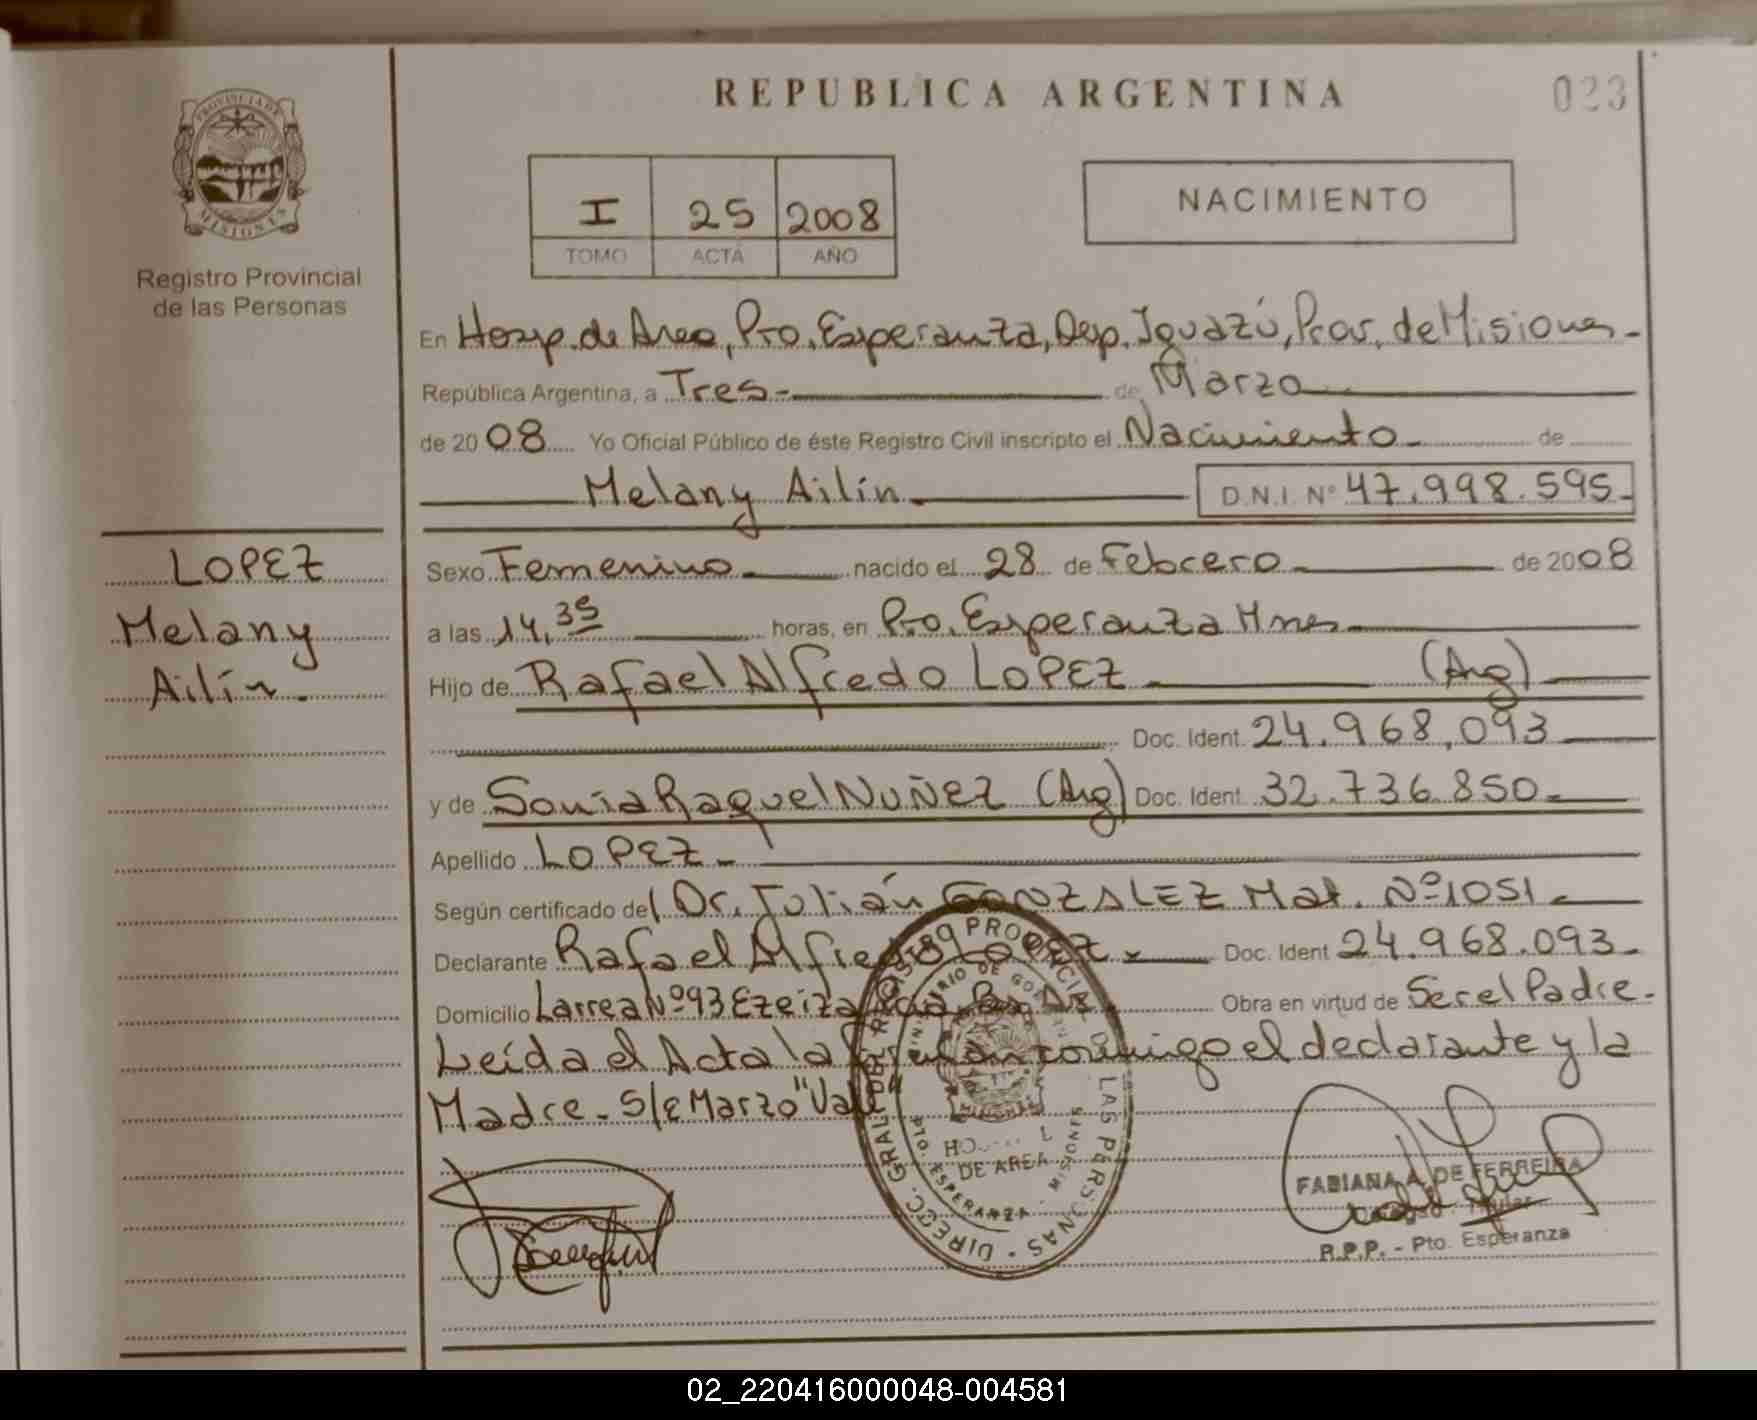 REPUBLICA ARGENTINA
023
PROVINCIA DE
MISIONES
Registro Provincial
de las Personas
I 25 2008
TOMO ACTA AÑO
NACIMIENTO
En Hosp. de Area, Pto. Esperanza, Dep. Iguazú, Prov. de Misiones.-
República Argentina, a Tres.- de Marzo
de 2008 Yo Oficial Público de éste Registro Civil inscripto el Nacimiento.- de
Melany Ailín.- D.N.I. Nº 47.998.595.-
LOPEZ
Melany
Ailín.
Sexo Femenino nacido el 28 de Febrero.- de 2008
a las 14,35 horas, en Pto. Esperanza Mnes.-
Hijo de Rafael Alfredo LOPEZ.- (Arg)
Doc. Ident. 24.968.093
y de Sonia Raquel NUÑEZ (Arg) Doc. Ident. 32.736.850.-
Apellido LOPEZ.-
Según certificado del Dr. Julián GONZALEZ Mat. Nº 1051.-
Declarante Rafael Alfredo LOPEZ.- Doc. Ident 24.968.093.-
Domicilio Larrea Nº 93 Ezeiza Bs. As. Obra en virtud de Ser el Padre.-
Leída el Acta la firman conmigo el declarante y la
Madre.- S/E Marzo "Vale"
DIRECC. GRAL. DEL REGISTRO PROVINCIAL DE LAS PERSONAS
MINISTERIO DE GOBIERNO
MISIONES
DE AREA
PTO. ESPERANZA - MISIONES
FABIANA A. DE FERREIRA
Titular
R.P.P. - Pto. Esperanza
02_220416000048-004581